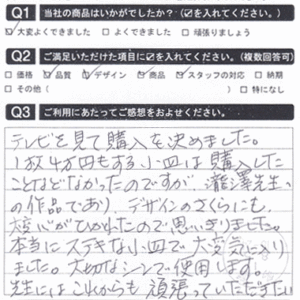 Q1 当社の商品はいかがでしたか？（☑を入れてください。）
☑大変よくできました □よくできました □頑張りましょう
Q2 ご満足いただけた項目に☑を入れてください。（複数回答可）
□価格 ☑品質 ☑デザイン ☑商品 ☑スタッフの対応 □納期
□その他（ ） □特になし
Q3 ご利用にあたってご感想をおよせください。
テレビを見て購入を決めました。
1枚4万円もする小皿は購入した
ことなどなかったのですが、瀧澤先生
の作品であり、デザインのさくらにも
心がひかれたので思いきりました。
本当にステキな小皿で大変気に入り
ました。大切なシーンで使用します。
先生にはこれからも頑張っていただきたい